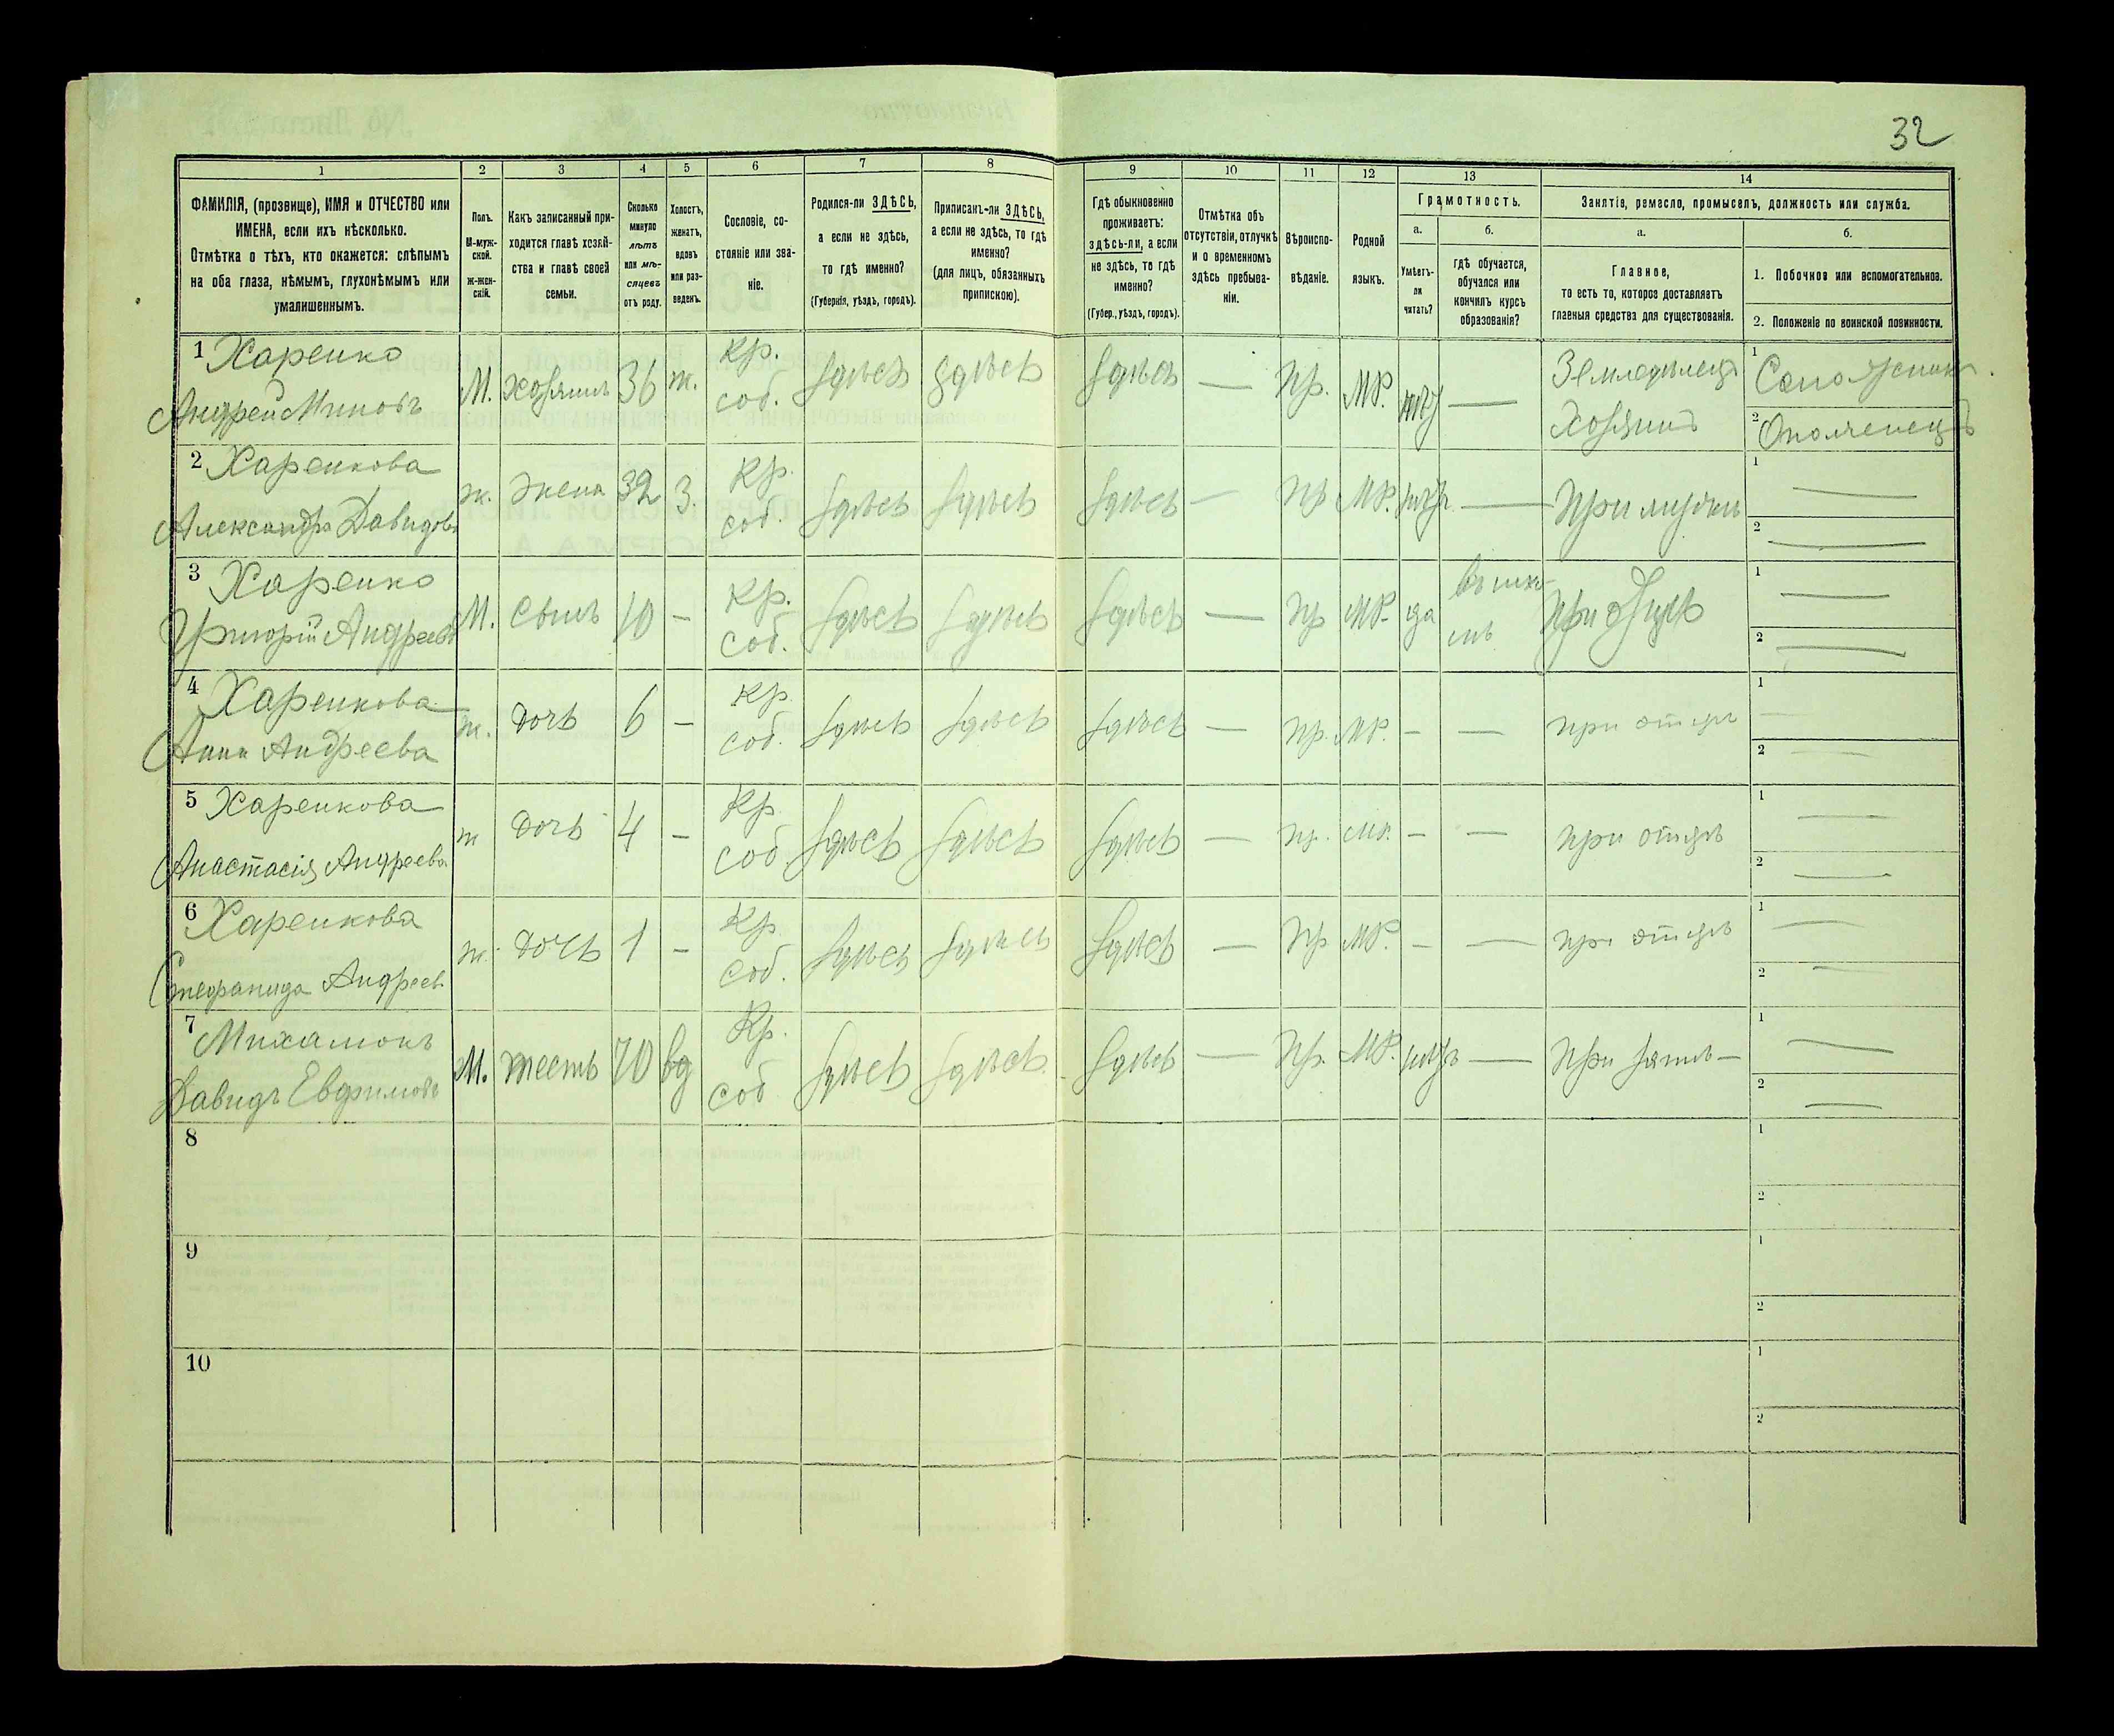 32
1 2 3 4 5 6 7 8 9 10 11 12 13 14
ФАМИЛІЯ, (прозвище), ИМЯ и ОТЧЕСТВО или
ИМЕНА, если ихъ нѣсколько.
Отмѣтка о тѣхъ, кто окажется: слѣпымъ
на оба глаза, нѣмымъ, глухонѣмымъ или
умалишеннымъ.
Полъ.
М-муж-
ской.
ж-жен-
скій.
Какъ записанный при-
ходится главѣ хозяй-
ства и главѣ своей
семьи.
Сколько
минуло
лѣтъ
или мѣ-
сяцевъ
отъ роду.
Холостъ,
женатъ,
вдовъ
или раз-
веденъ.
Сословіе, со-
стояніе или зва-
ніе.
Родился-ли ЗДѢСЬ,
а если не здѣсь,
то гдѣ именно?
(Губернія, уѣздъ, городъ).
Приписанъ-ли ЗДѢСЬ,
а если не здѣсь, то гдѣ
именно?
(для лицъ, обязанныхъ
припискою).
Гдѣ обыкновенно
проживаетъ:
здѣсь-ли, а если
не здѣсь, то гдѣ
именно?
(Губер., уѣздъ, городъ).
Отмѣтка объ
отсутствіи, отлучкѣ
и о временномъ
здѣсь пребыва-
ніи.
Вѣроиспо-
вѣданіе.
Родной
языкъ.
Грамотность.
а.
Умѣетъ-
ли
читать?
б.
гдѣ обучается,
обучался или
кончилъ курсъ
образованія?
Занятіе, ремесло, промыселъ, должность или служба.
а.
Главное,
то есть то, которое доставляетъ
главныя средства для существованія.
б.
1. Побочное или вспомогательное.
2. Положеніе по воинской повинности.
1 Харенко
Андрей Миновъ
М. хозяинъ 36 ж. Кр. соб. здѣсь здѣсь здѣсь — Пр. МР. — Земледѣлецъ Хозяинъ
1 Сапожник.
2 Ополченецъ
2 Харенкова
Александра Давидов
ж. жена 32 З. Кр. соб. здѣсь здѣсь здѣсь — Пр МР. — При мужѣ
1 —
2 —
3 Харенко
Григорій Андреевъ
М. сынъ 10 - Кр. соб. здѣсь здѣсь здѣсь — Пр МР. да въ шко-лѣ При отцѣ
1 —
2 —
4 Харенкова
Анна Андреева
ж. дочь 6 - Кр. соб. здѣсь здѣсь здѣсь — Пр. МР. - — при отцѣ
1 —
2 —
5 Харенкова
Анастасія Андреева
ж дочь 4 - Кр. соб здѣсь здѣсь здѣсь — пр. МР. - — при отцѣ
1 —
2 —
6 Харенкова
Стефанида Андреев.
ж. дочь 1 - Кр. соб. здѣсь здѣсь здѣсь — Пр МР. - — при отцѣ
1 —
2 —
7
Давидъ Евфимовъ
М. тесть 70 вд Кр. соб здѣсь здѣсь здѣсь — Пр. МР. — При зятѣ —
1 —
2 —
8
1
2
9
1
2
10
1
2